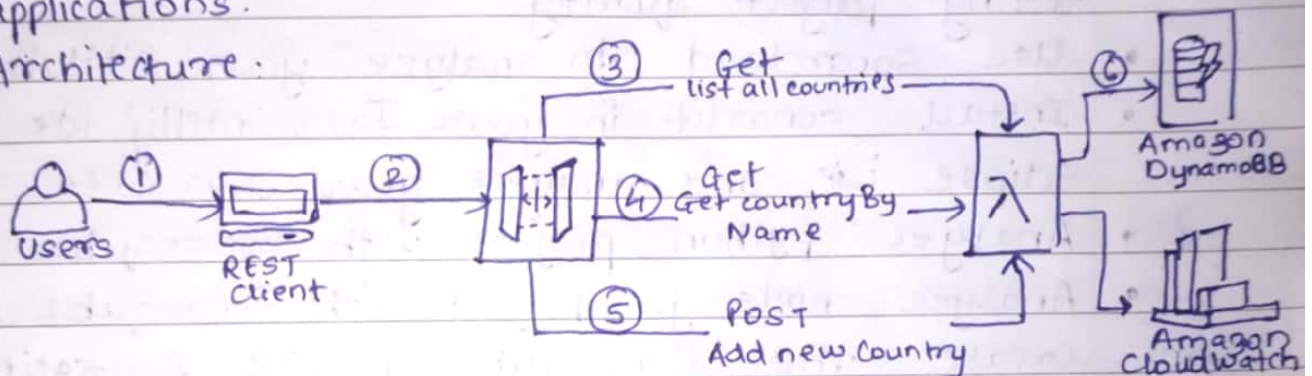 applications.
Architecture.
①
Users
REST
Client
②
③ Get
list all countries
④ Get
Get countryBy
Name
⑤ POST
Add new Country
λ
⑥
Amazon
DynamoBB
Amazon
CloudWatch